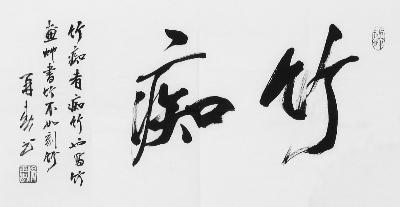 竹痴
竹痴者痴竹也写竹
画竹书竹不如刻竹